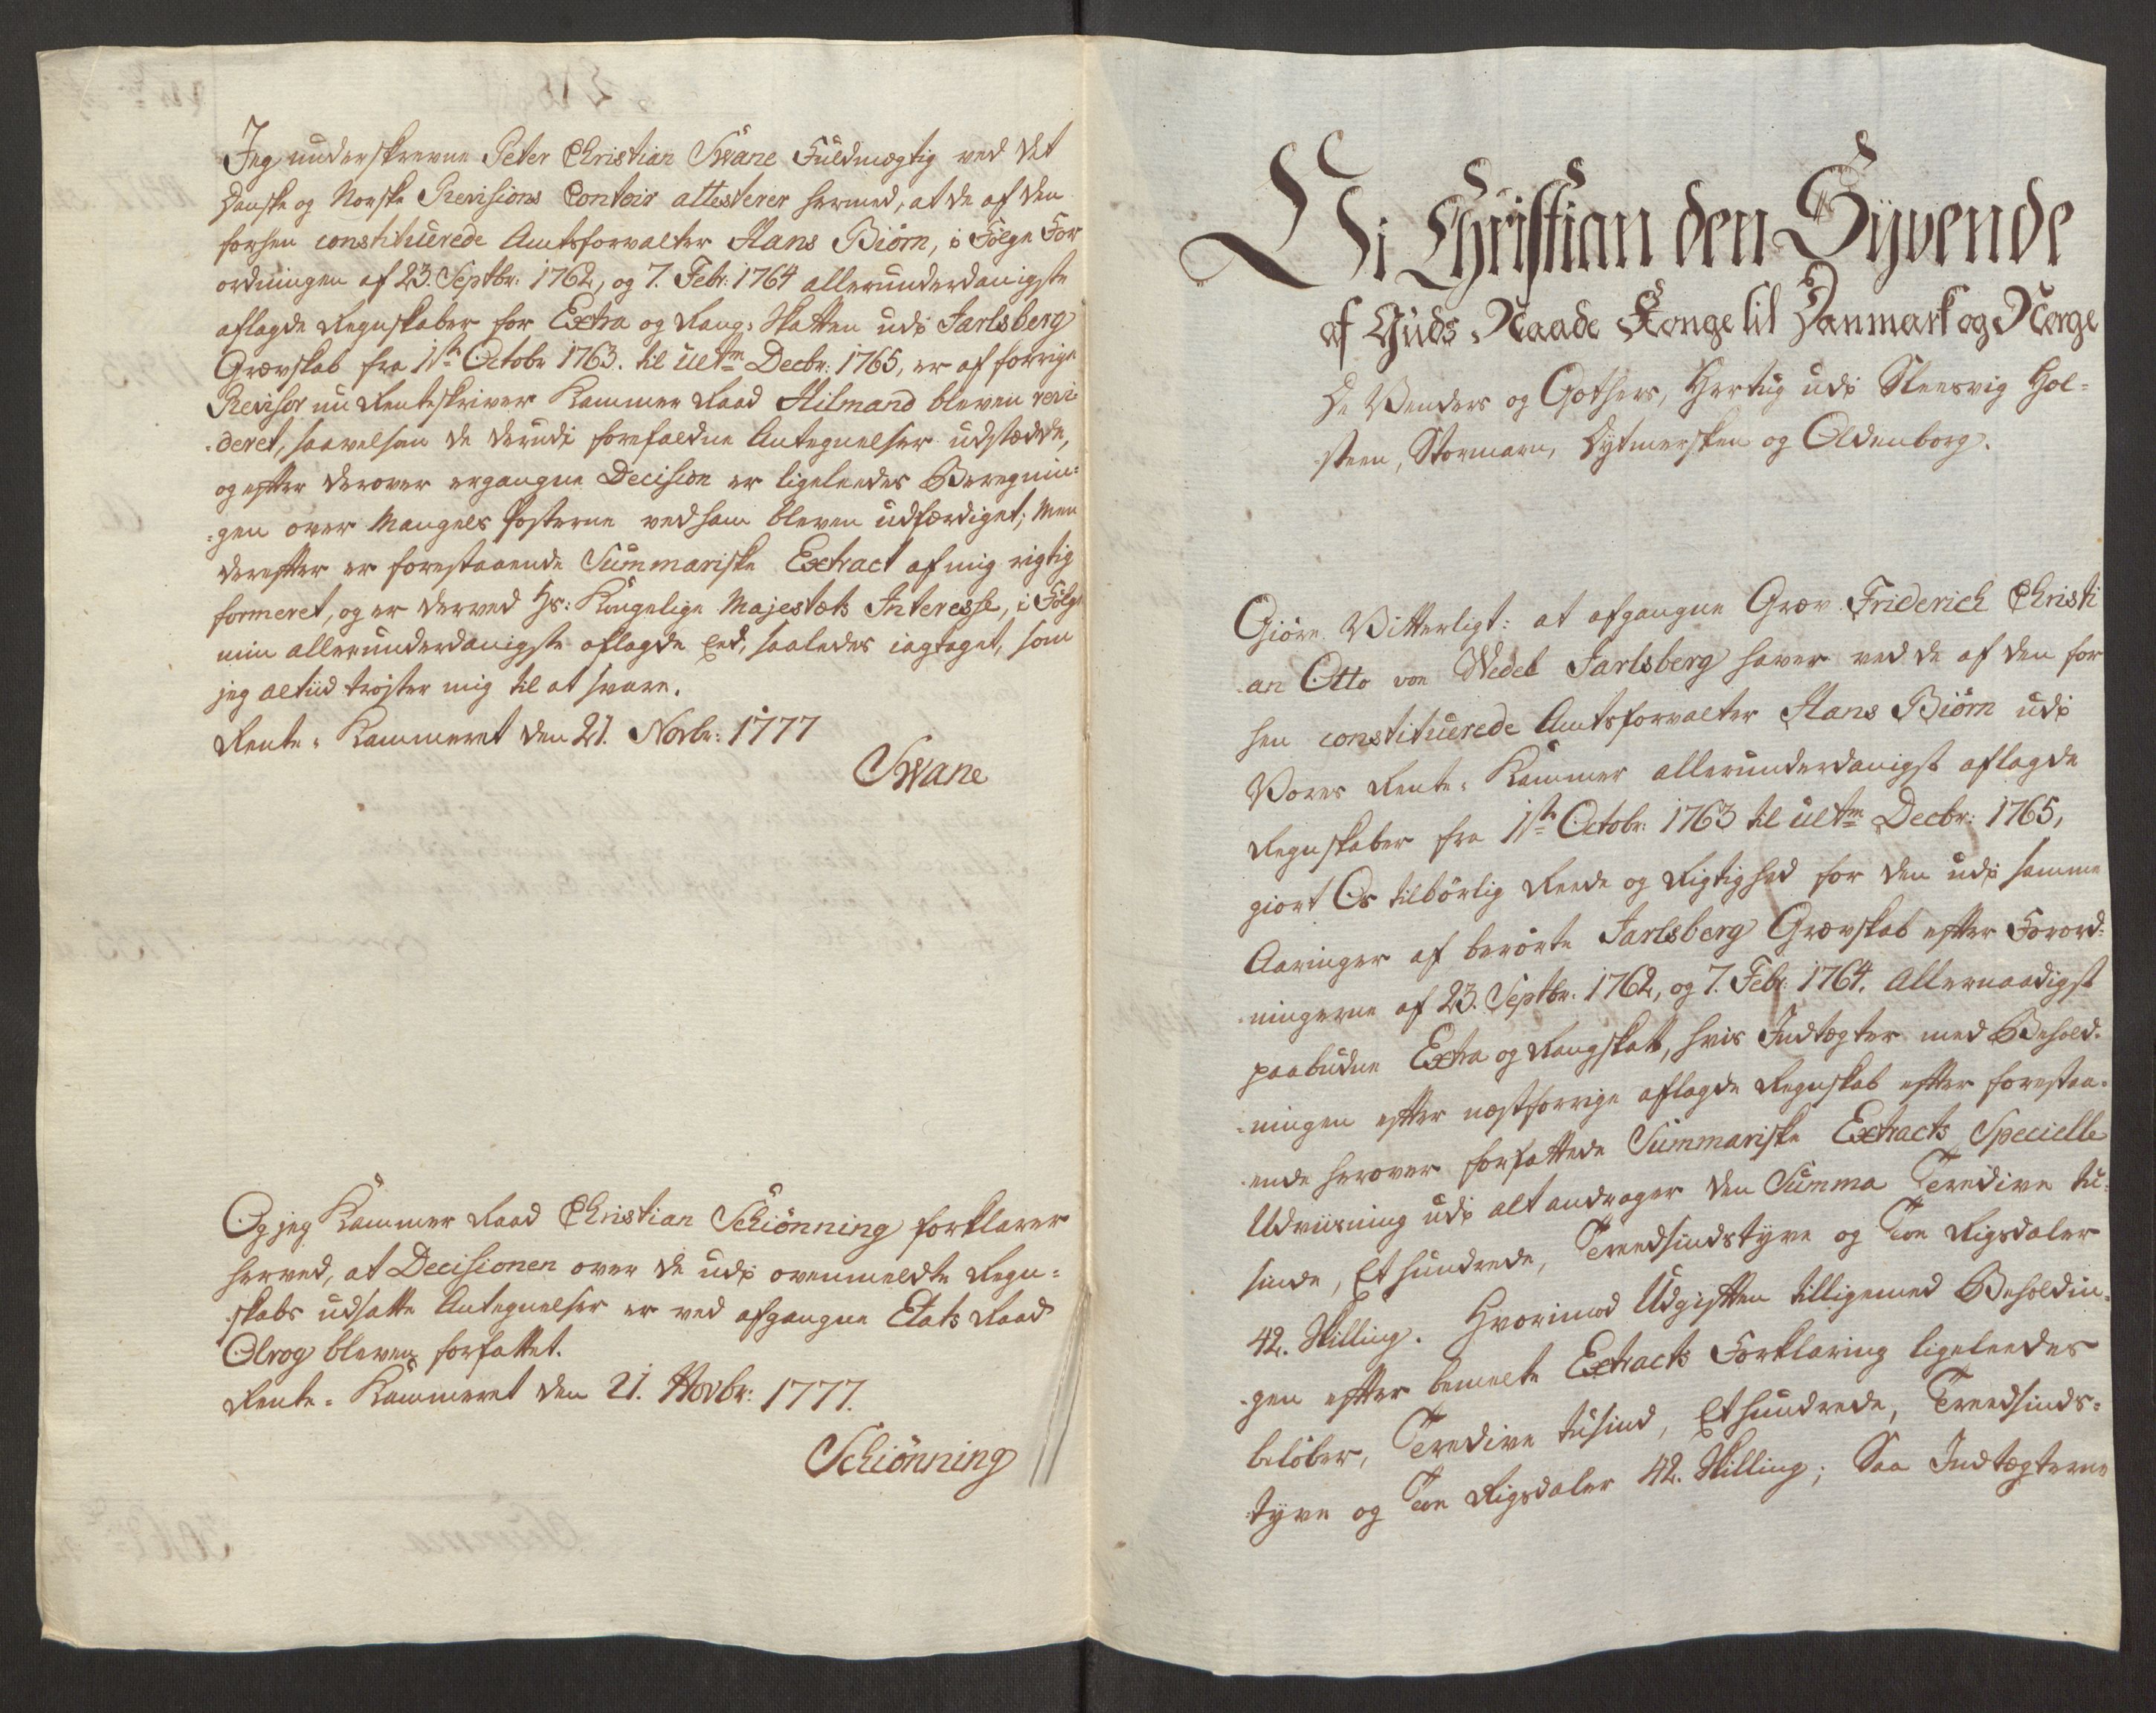 Jeg underskrevne Peter Christian Swane Fuldmægtig ved det
Danske og Norske Revisions Contoir attesterer hermed, at de af den
forhen constituerede Amtsforvalter Hans Biörn, i Fölge For
ordningen af 23. Septbr: 1762, og 7. Febr: 1764 allerunderdanigste
aflagde Regnskaber for Extra og Rang-Skatten udi Jarlsberg
Grævskab fra 1ste Octobr 1763. til ultm Decbr: 1765, er af forrige
Revisor nu Renteskriver Kammer Raad Hilmand bleven revi-
-deret, saavelsom de derudi forefaldne Antegnelser udstædde,
og efter derover ergangne Decision er ligeleedes Beregnin-
-gen over Mangels Posterne ved ham bleven udfærdiget; Men
derefter er forestaaende Summariske Extract af mig rigtig
formeret, og er derved Hs: Kongelige Majestæts Interesse, i Fölge
min allerunderdanigste aflagde Eed, saaledes iagtaget, som
jeg altiid tröster mig til at svare.
Rente-Kammeret den 21. Novbr: 1777
Swane
Og jeg Kammer Raad Christian Schiönning forklarer
herved, at Decisionen over de udi ovenmeldte Regn-
skabs udsatte Antegnelser er ved afgangne Etats Raad
Olrog bleven forfattet.
Rente-Kammeret den 21. Novbr: 1777.
Schiönning
Vi Christian den Syvende
af Guds Naade Konge til Danmark og Norge
De Venders og Gothers, Hertug udi Sleesvig Hol-
steen, Stormarn, Dytmersken og Oldenborg.
Giöre Vitterligt: at afgangne Græv Friderich Christi
an Otto von Wedel Jarlsberg haver ved de af den for
hen constituerede Amtsforvalter Hans Biörn udi
Vores Rente-Kammer allerunderdanigst aflagde
Regnskaber fra 1ste Octobr: 1763 til ultm Decbr: 1765,
giort Os tilbörlig Reede og Rigtighed for den udi samme
Aaringer af berörte Jarlsberg Grævskab efter Forord-
-ningerne af 23. Septbr. 1762, og 7. Febr: 1764. Allernaadigst
paabudne Extra og Rangskatt, hvis Indtægter med Behold-
-ningen efter næstforrige aflagde Regnskab efter forestaa-
-ende herover forfattede Summariske Extracts Specielle
Udviisning udi alt andrager den Summa Tredive tu-
sinde, Et hundrede, Treedsindstyve og Toe Rigsdaler
42. Skilling. Hvorimod Udgiftten tilligemed Beholdin-
-gen efter bemelte Extracts Forklaring ligeleedes
belöber, Tredive tusind, Et hundrede, Treedsinds-
tyve og Toe Rigsdaler 42. Skilling; Saa Indtægterne